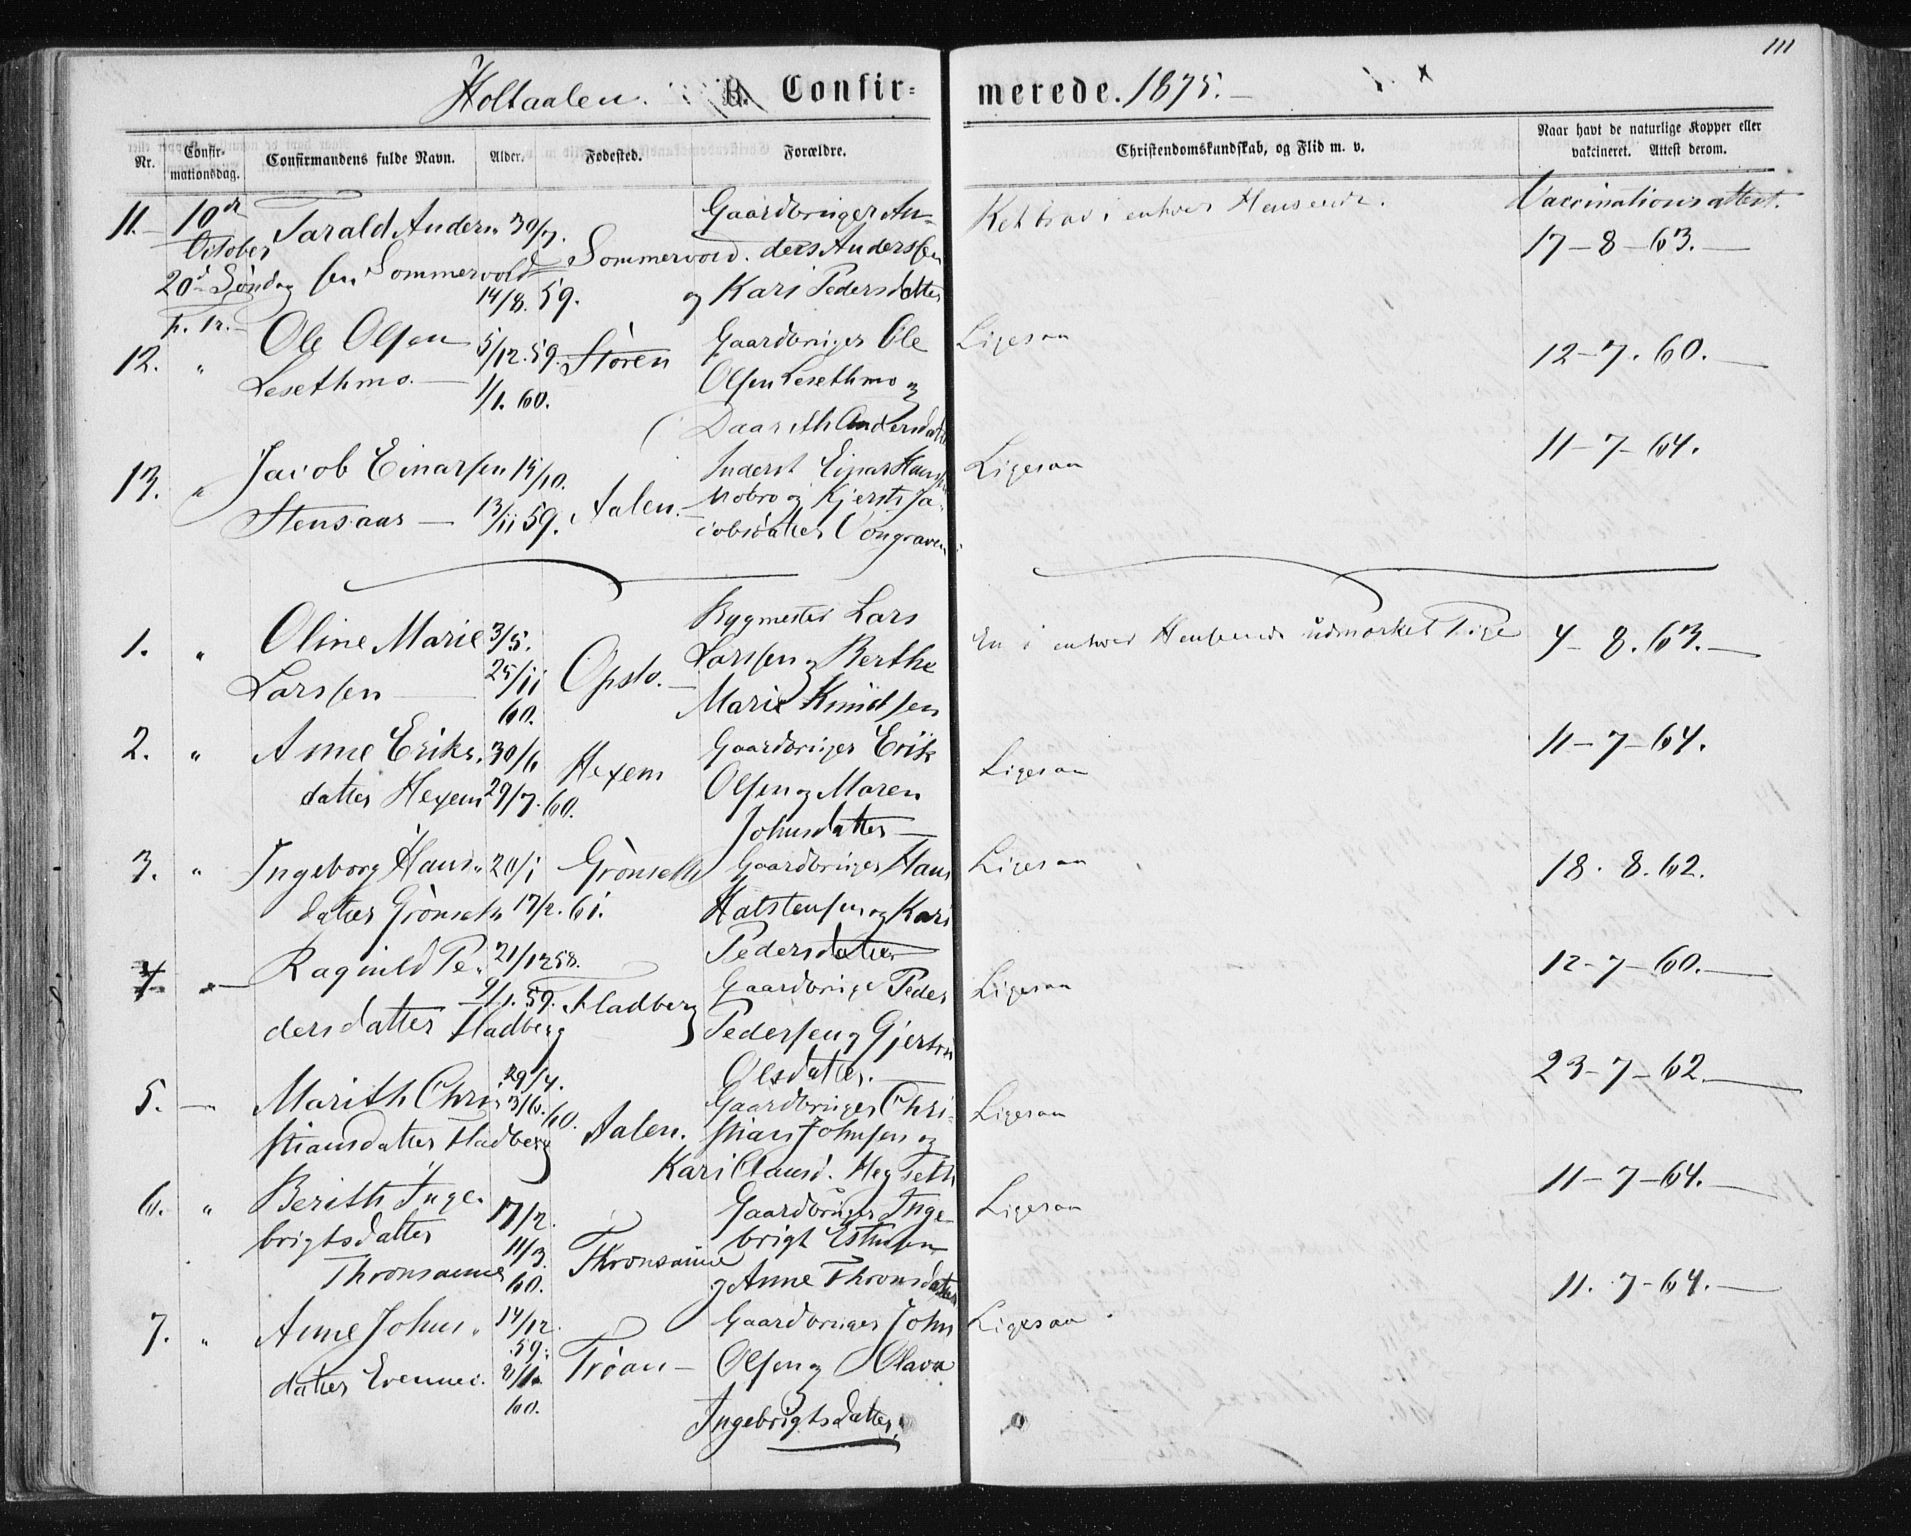 111
Holtaalen. B. Confir= merede. 1875.
Nr. Confir-mationsdag. Confirmandens fulde Navn. Alder. Fødested. Forældre. Christendomskundskab, og Flid m. v. Naar havt de naturlige Kopper eller vakcineret. Attest derom.
11. 10de Tarald Anders= 30/7. Gaardbruger An- Ret bra i enhver Henseende. Vaccinationsattest.
October sen Sommervold Sommervold. ders Anderssen 17-8-63.
20de Søndag 14/8. 59. og Kari Pedersdatter
p. Tr.
12. " Ole Olsen 5/12. 59. Støren Gaardbruger Ole Ligesaa 12-7.60.
Lesethmo. 1/1. 60. Olsen Lesethmo og
Daarith Andersdatter
13. " Jacob Einarsen 19/10. Aalen. Inderst Einar Ligesaa 11-7-64.
Stensaas 13/11 59. Mobro og Kjersti Ja-
cobsdatter Vongraven
1. " Oline Marie 3/5. Opslo. Bygmester Lars En i enhver Henseende udmærket Pige 4-8.63.
Larssen 25/11 Larssen og Berthe
60. Marie Knudsen
2. " Anne Eriks- 30/6 Hexem Gaardbruger Erik Ligesaa 11-7-64.
datter Hexem 29/7.60. Olsen og Maren
Johnsdatter
3. " Ingeborg Hans- 20/1 Grønseth Gaardbruger Hans Ligesaa 18.8.62.
datter Grønseth 17/2. 61. Halstensen og Kari
Pedersdatter
4 " Ragnild Pe- 21/12 58. Fladberg Gaardbruger Peder Ligesaa 12-7-60.
dersdatter Fladberg 9/1. 59. Pedersen og Gjertru
Olsdatter.
5. " Marith Chri- 29/4. Aalen. Gaardbruger Chri- Ligesaa 23-7-62.
stiansdatter Fladberg 3/6. 60. stian Johnsen og
Kari Clausd. Hegseth
6. " Berith Inge- 17/2. Thronsaune Gaardbruger Inge- Ligesaa 11-7-64.
brigtsdatter 11/3. brigt Estensen
Thronsaune 60. og Anne Thronsdatter
7. " Anne Johns- 14/12. Trøan Gaardbruger John Ligesaa 11.7-64.
datter Evenmo. 59. Olsen og Olava
60. Ingebrigtsdatter.